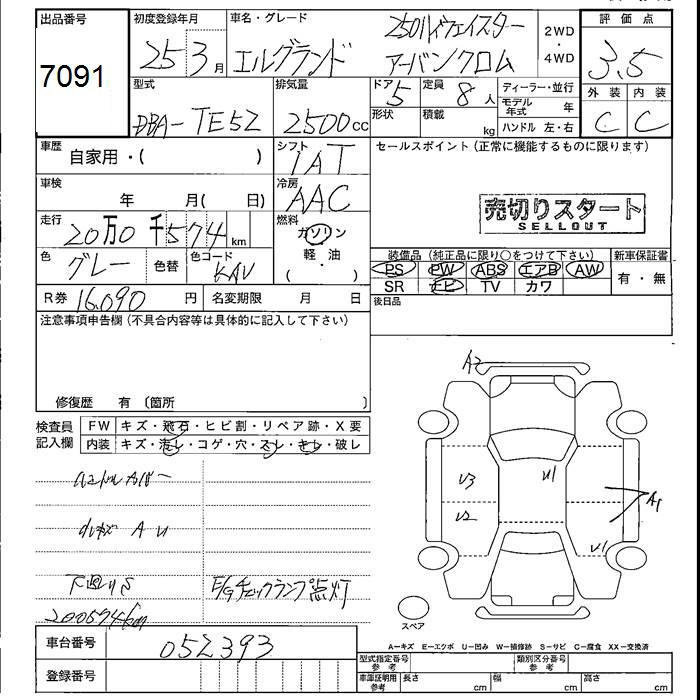 出品番号
7091
初度登録年月
25 3月
車名・グレード
エルグランド
250ハイウェイスター
アーバンクロム
2WD
・
4WD
評価点
3.5
外装 内装
C C
型式
DBA-TE52
排気量
2500cc
ドア 5
形状
定員 8人
積載 kg
ディーラー・並行
モデル年式 年
ハンドル 左・右
車歴 自家用・( )
シフト IAT
車検 年 月( 日)
冷房 AAC
走行 20万0千574km
燃料
ガソリン
軽・油
( ・ )
色 グレー 色替 色コード KAV
R券 16,090円 名変期限 月 日
セールスポイント(正常に機能するものに限ります)
売切りスタート
SELLOUT
装備品(純正品に限り○をつけて下さい) 新車保証書
PS PW ABS エアB AW
SR ナビ TV カワ
有・無
後日品
注意事項申告欄(不具合内容等は具体的に記入して下さい)
修復歴 有〔箇所 〕
検査員
記入欄
FW キズ・飛石・ヒビ割・リペア跡・X要
内装 キズ・汚レ・コゲ・穴・スレ・キレ・破レ
下廻りS
200574km
E/gチェックランプ点灯
A2
U3
U2
U1
A1
U1
スペア
A-キズ E-エクボ U-凹み W-補修跡 S-サビ C-腐食 XX-交換済
車台番号 052393
登録番号
型式指定番号 参考
類別区分番号 参考
車庫証明用 参考 長さ cm 幅 cm 高さ cm